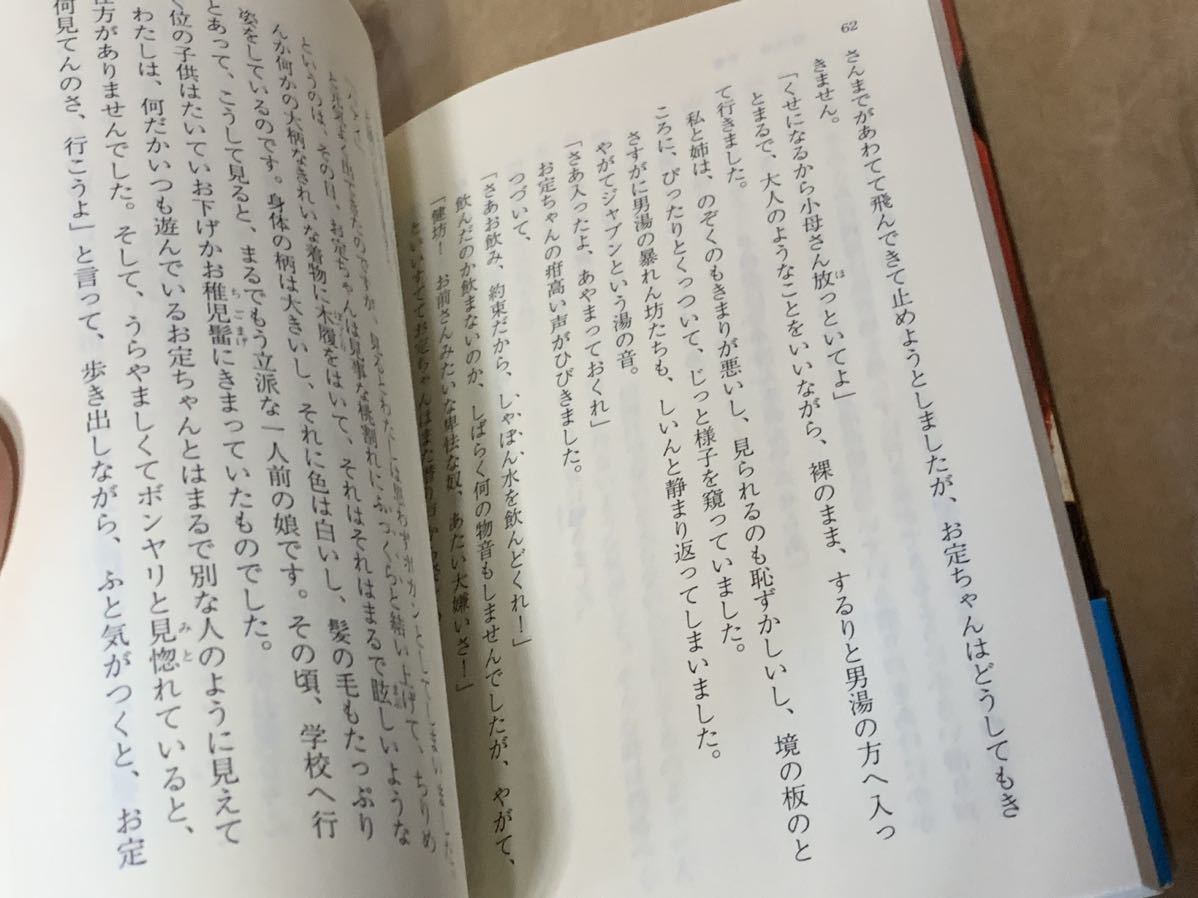 62
さんまでがあわてて飛んできて止めようとしましたが、お定ちゃんはどうしてもき
きません。
「くせになるから小母さん放っといてよ」
ほ
とまるで、大人のようなことをいいながら、裸のまま、するりと男湯の方へ入っ
て行きました。
私と姉は、のぞくのもきまりが悪いし、見られるのも恥ずかしいし、境の板のと
ころに、ぴったりとくっついて、じっと様子を窺っていました。
さすがに男湯の暴れん坊たちも、しいんと静まり返ってしまいました。
やがてジャブンという湯の音。
「さあ入ったよ、あやまっておくれ」
お定ちゃんの疳高い声がひびきました。
つづいて、
「さあお飲み、約束だから、しゃぼん水を飲んどくれ！」
飲んだのか飲まないのか、しばらく何の物音もしませんでしたが、やがて、
「健坊！　お前さんみたいな卑怯な奴、あたい大嫌いさ！」
といいすててお定ちゃんはまた
ポカンとしてしまいました。
というのは、その日、お定ちゃんは見事な桃割れにふっくらと結い上げて、ちりめ
んか何かの大柄なきれいな着物に木履をはいて、それはそれはまるで眩しいような
姿をしているのです。身体の柄は大きいし、それに色は白いし、髪の毛もたっぷり
とあって、こうして見ると、まるでもう立派な一人前の娘です。その頃、学校へ行
く位の子供はたいていお下げかお稚児髷にきまっていたものでした。
ちごまげ
わたしは、何だかいつも遊んでいるお定ちゃんとはまるで別な人のように見えて
方がありませんでした。そして、うらやましくてボンヤリと見惚れていると、
みと
何見てんのさ、行こうよ」と言って、歩き出しながら、ふと気がつくと、お定